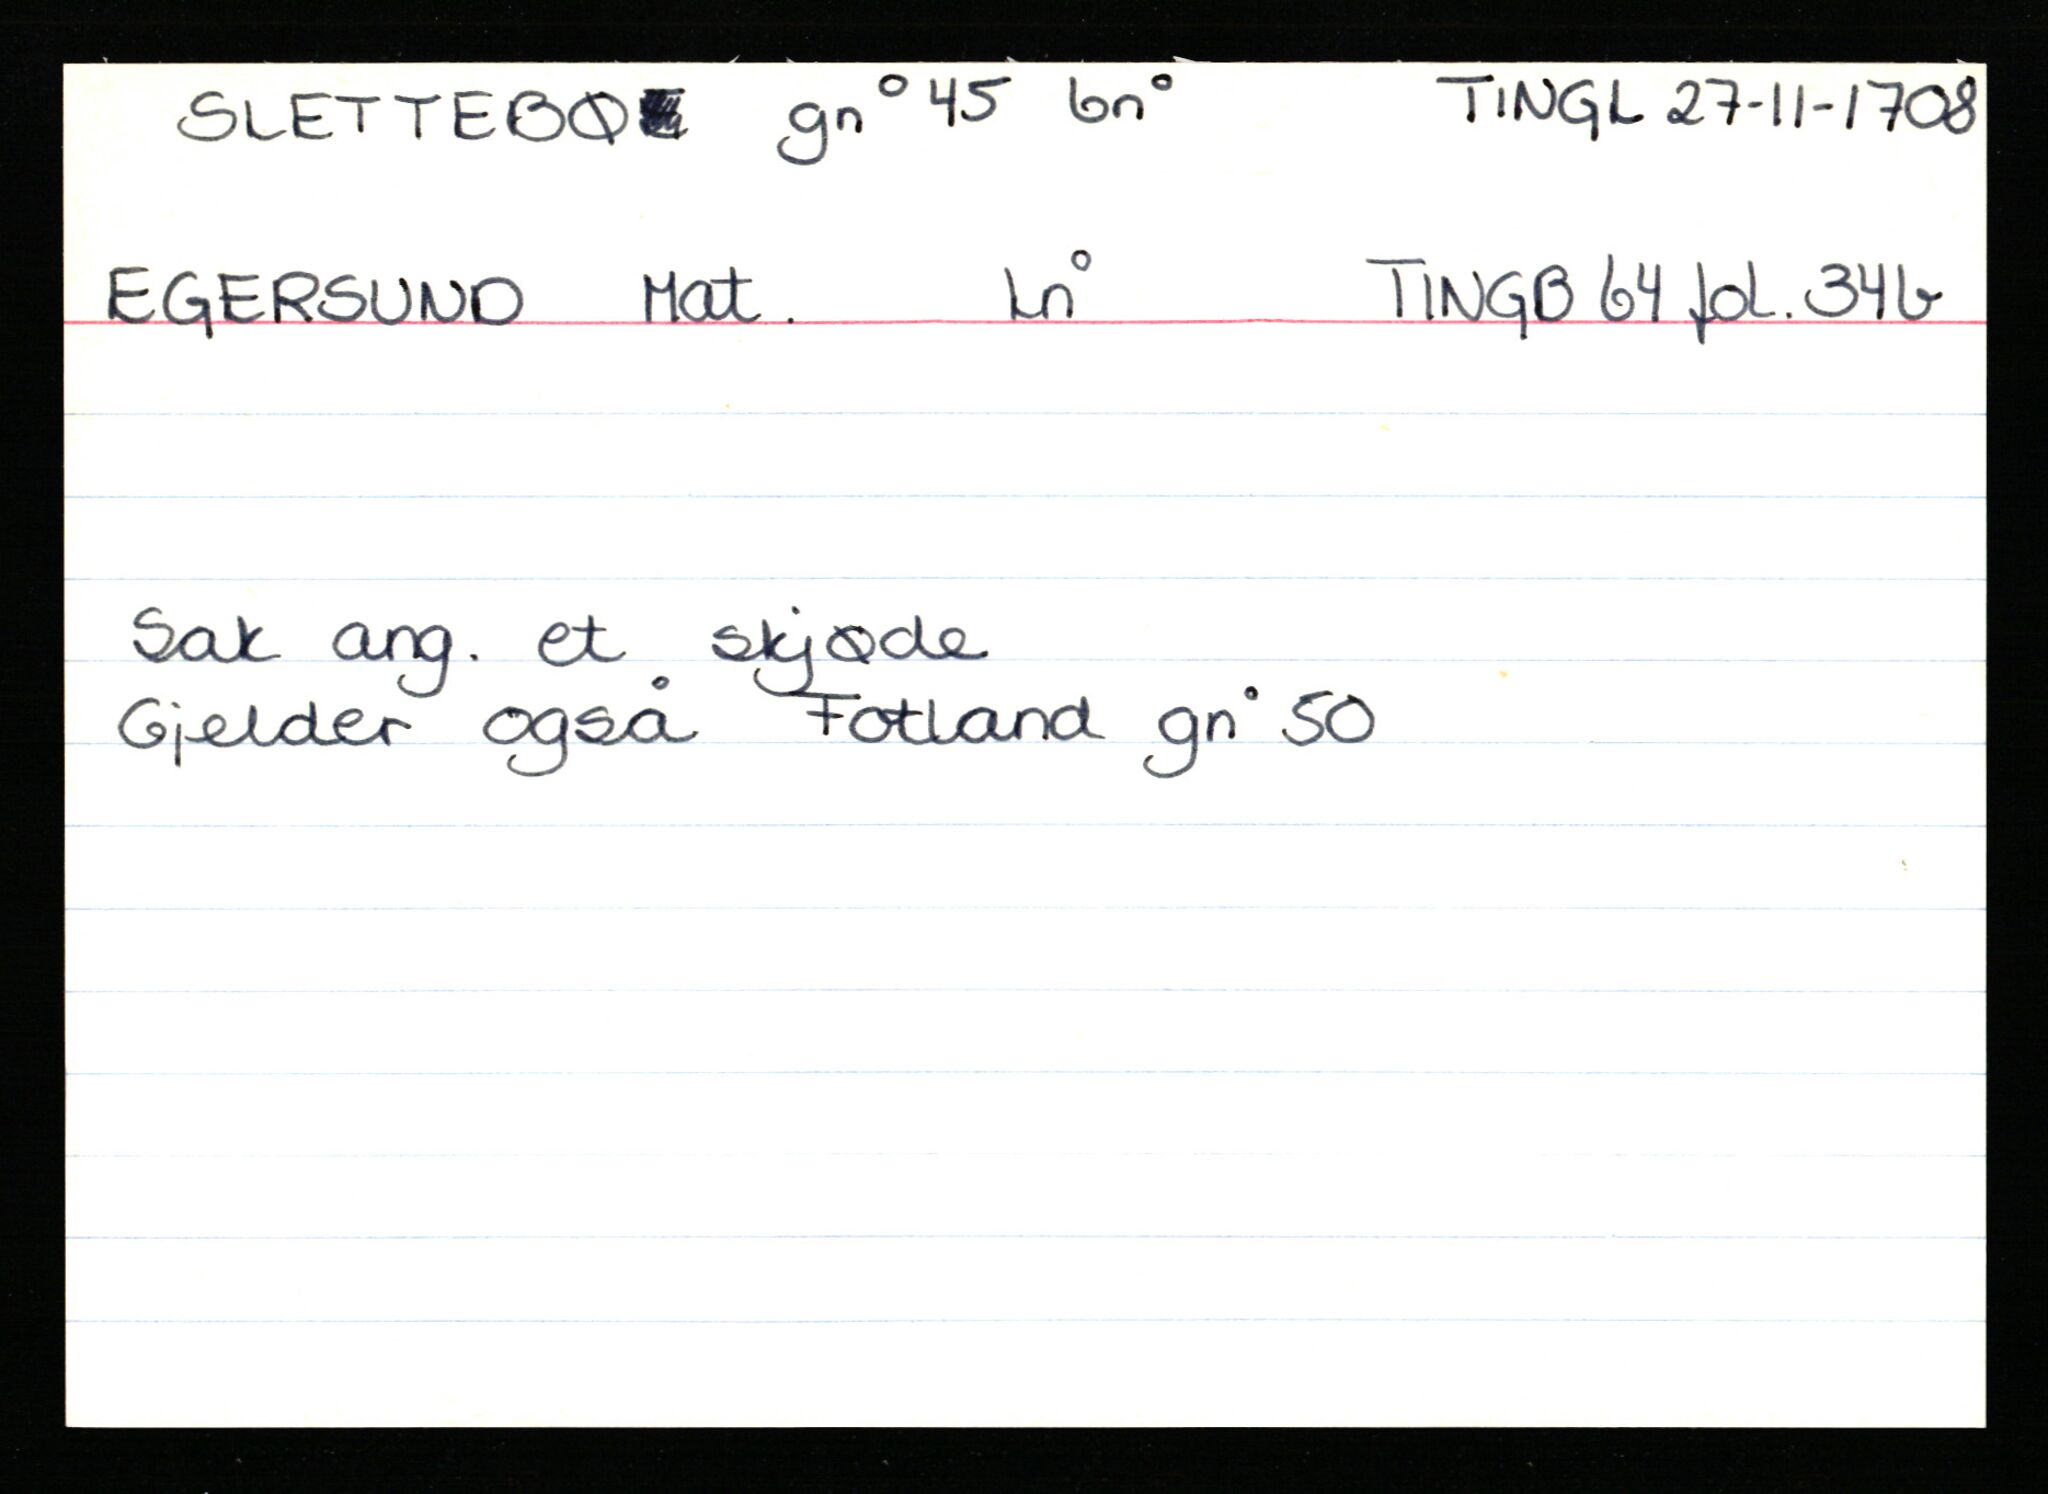 SLETTEBØ gn° 45 bn° TINGL 27-11-1708
EGERSUND Mat. Ln° TINGB 64 fol. 34b
Sak ang. et skjøde
Gjelder også Fotland gn° 50